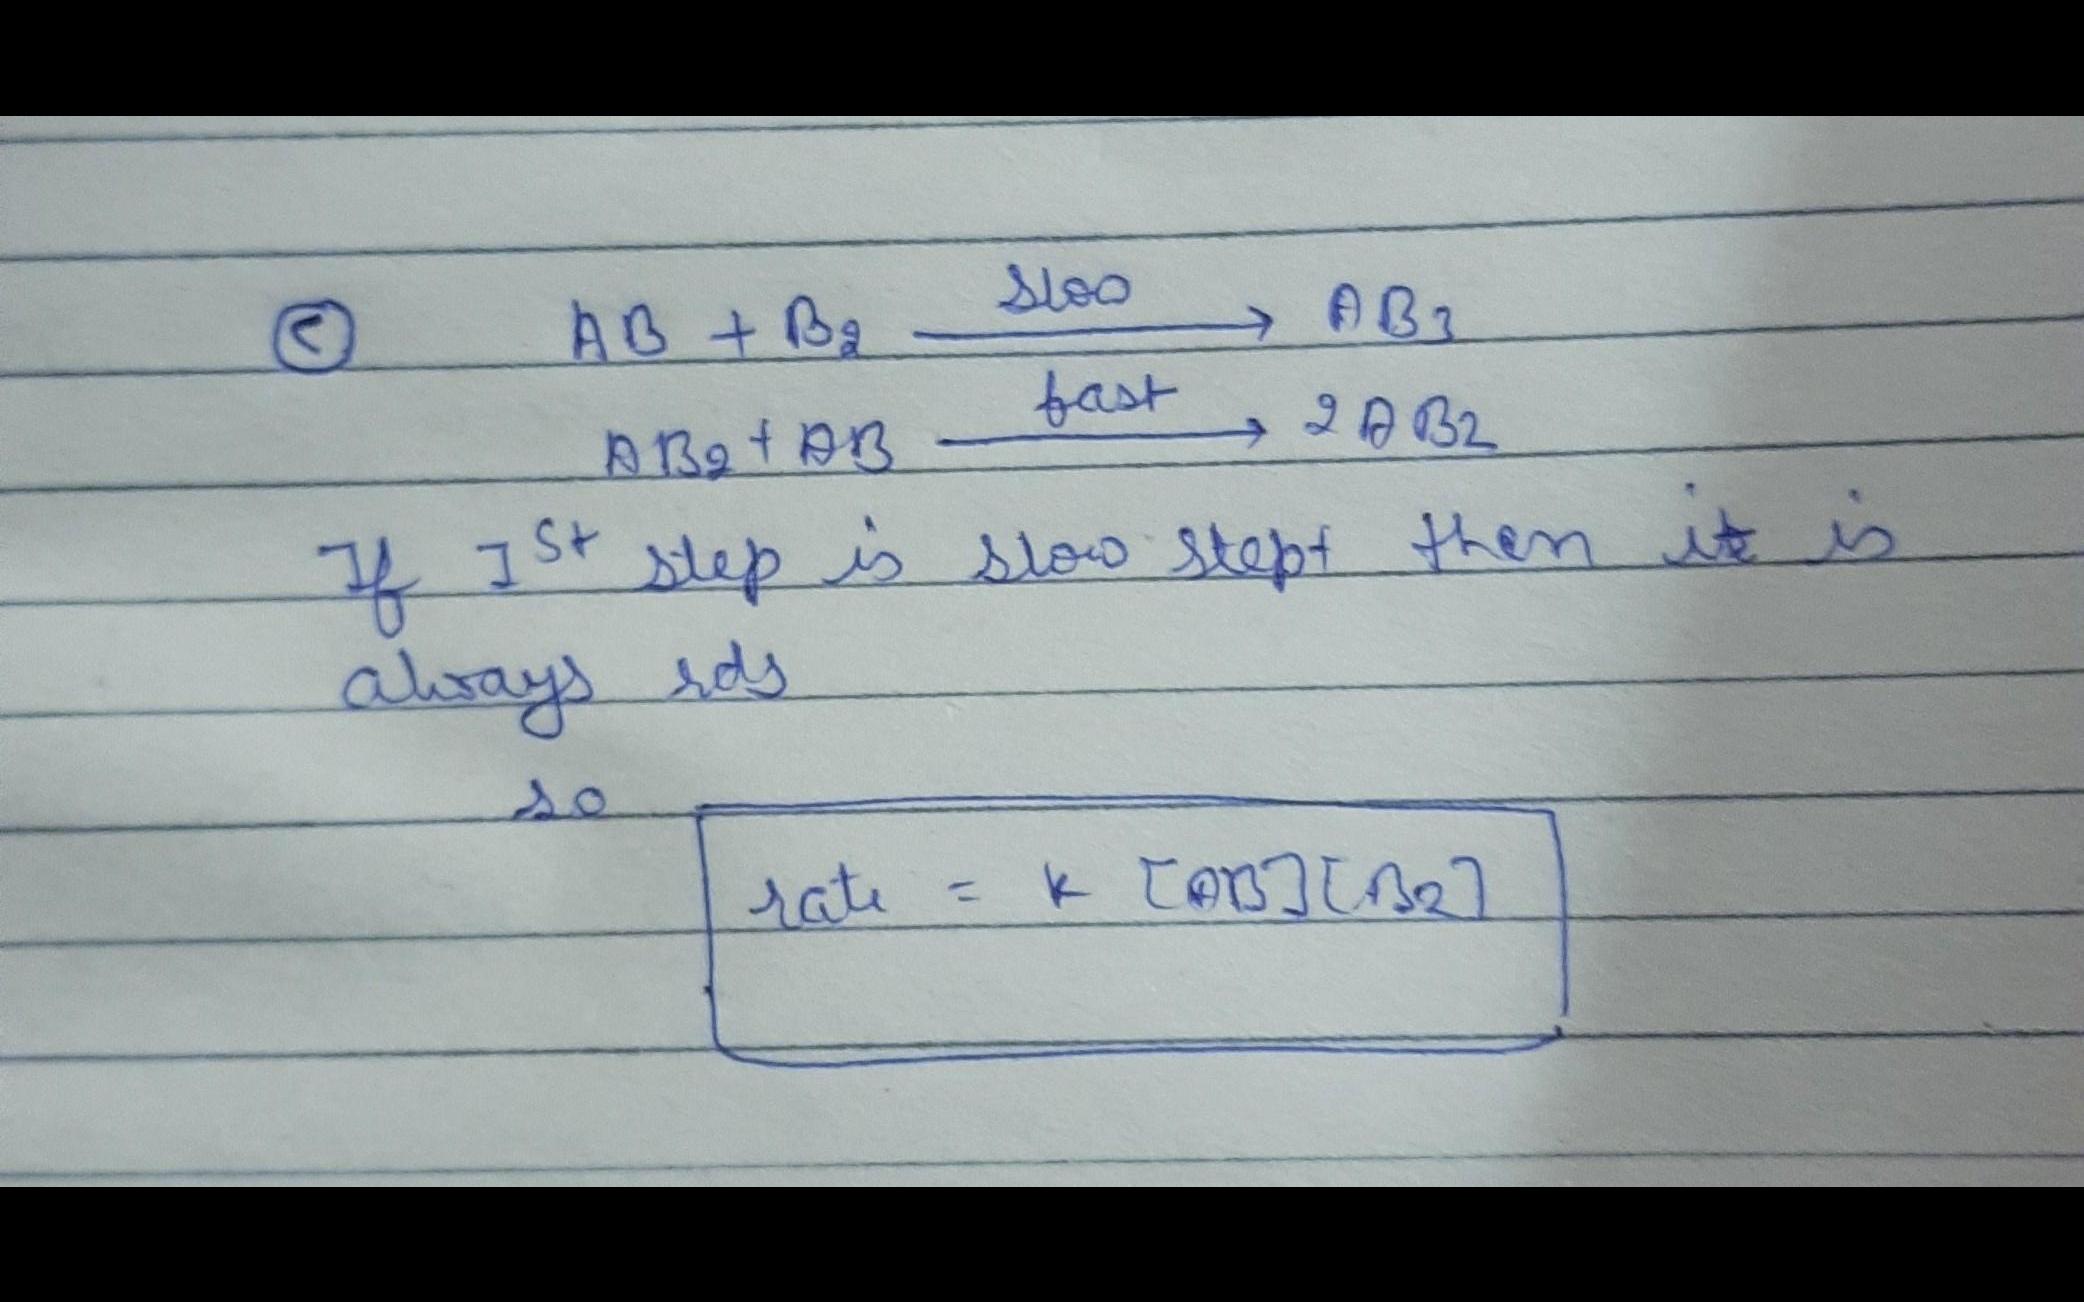 (c) AB + B2 slow → AB3
AB2 + AB fast → 2AB2
If Ist step is slow stept then it is
always rds
so
rate = k [AB][B2]